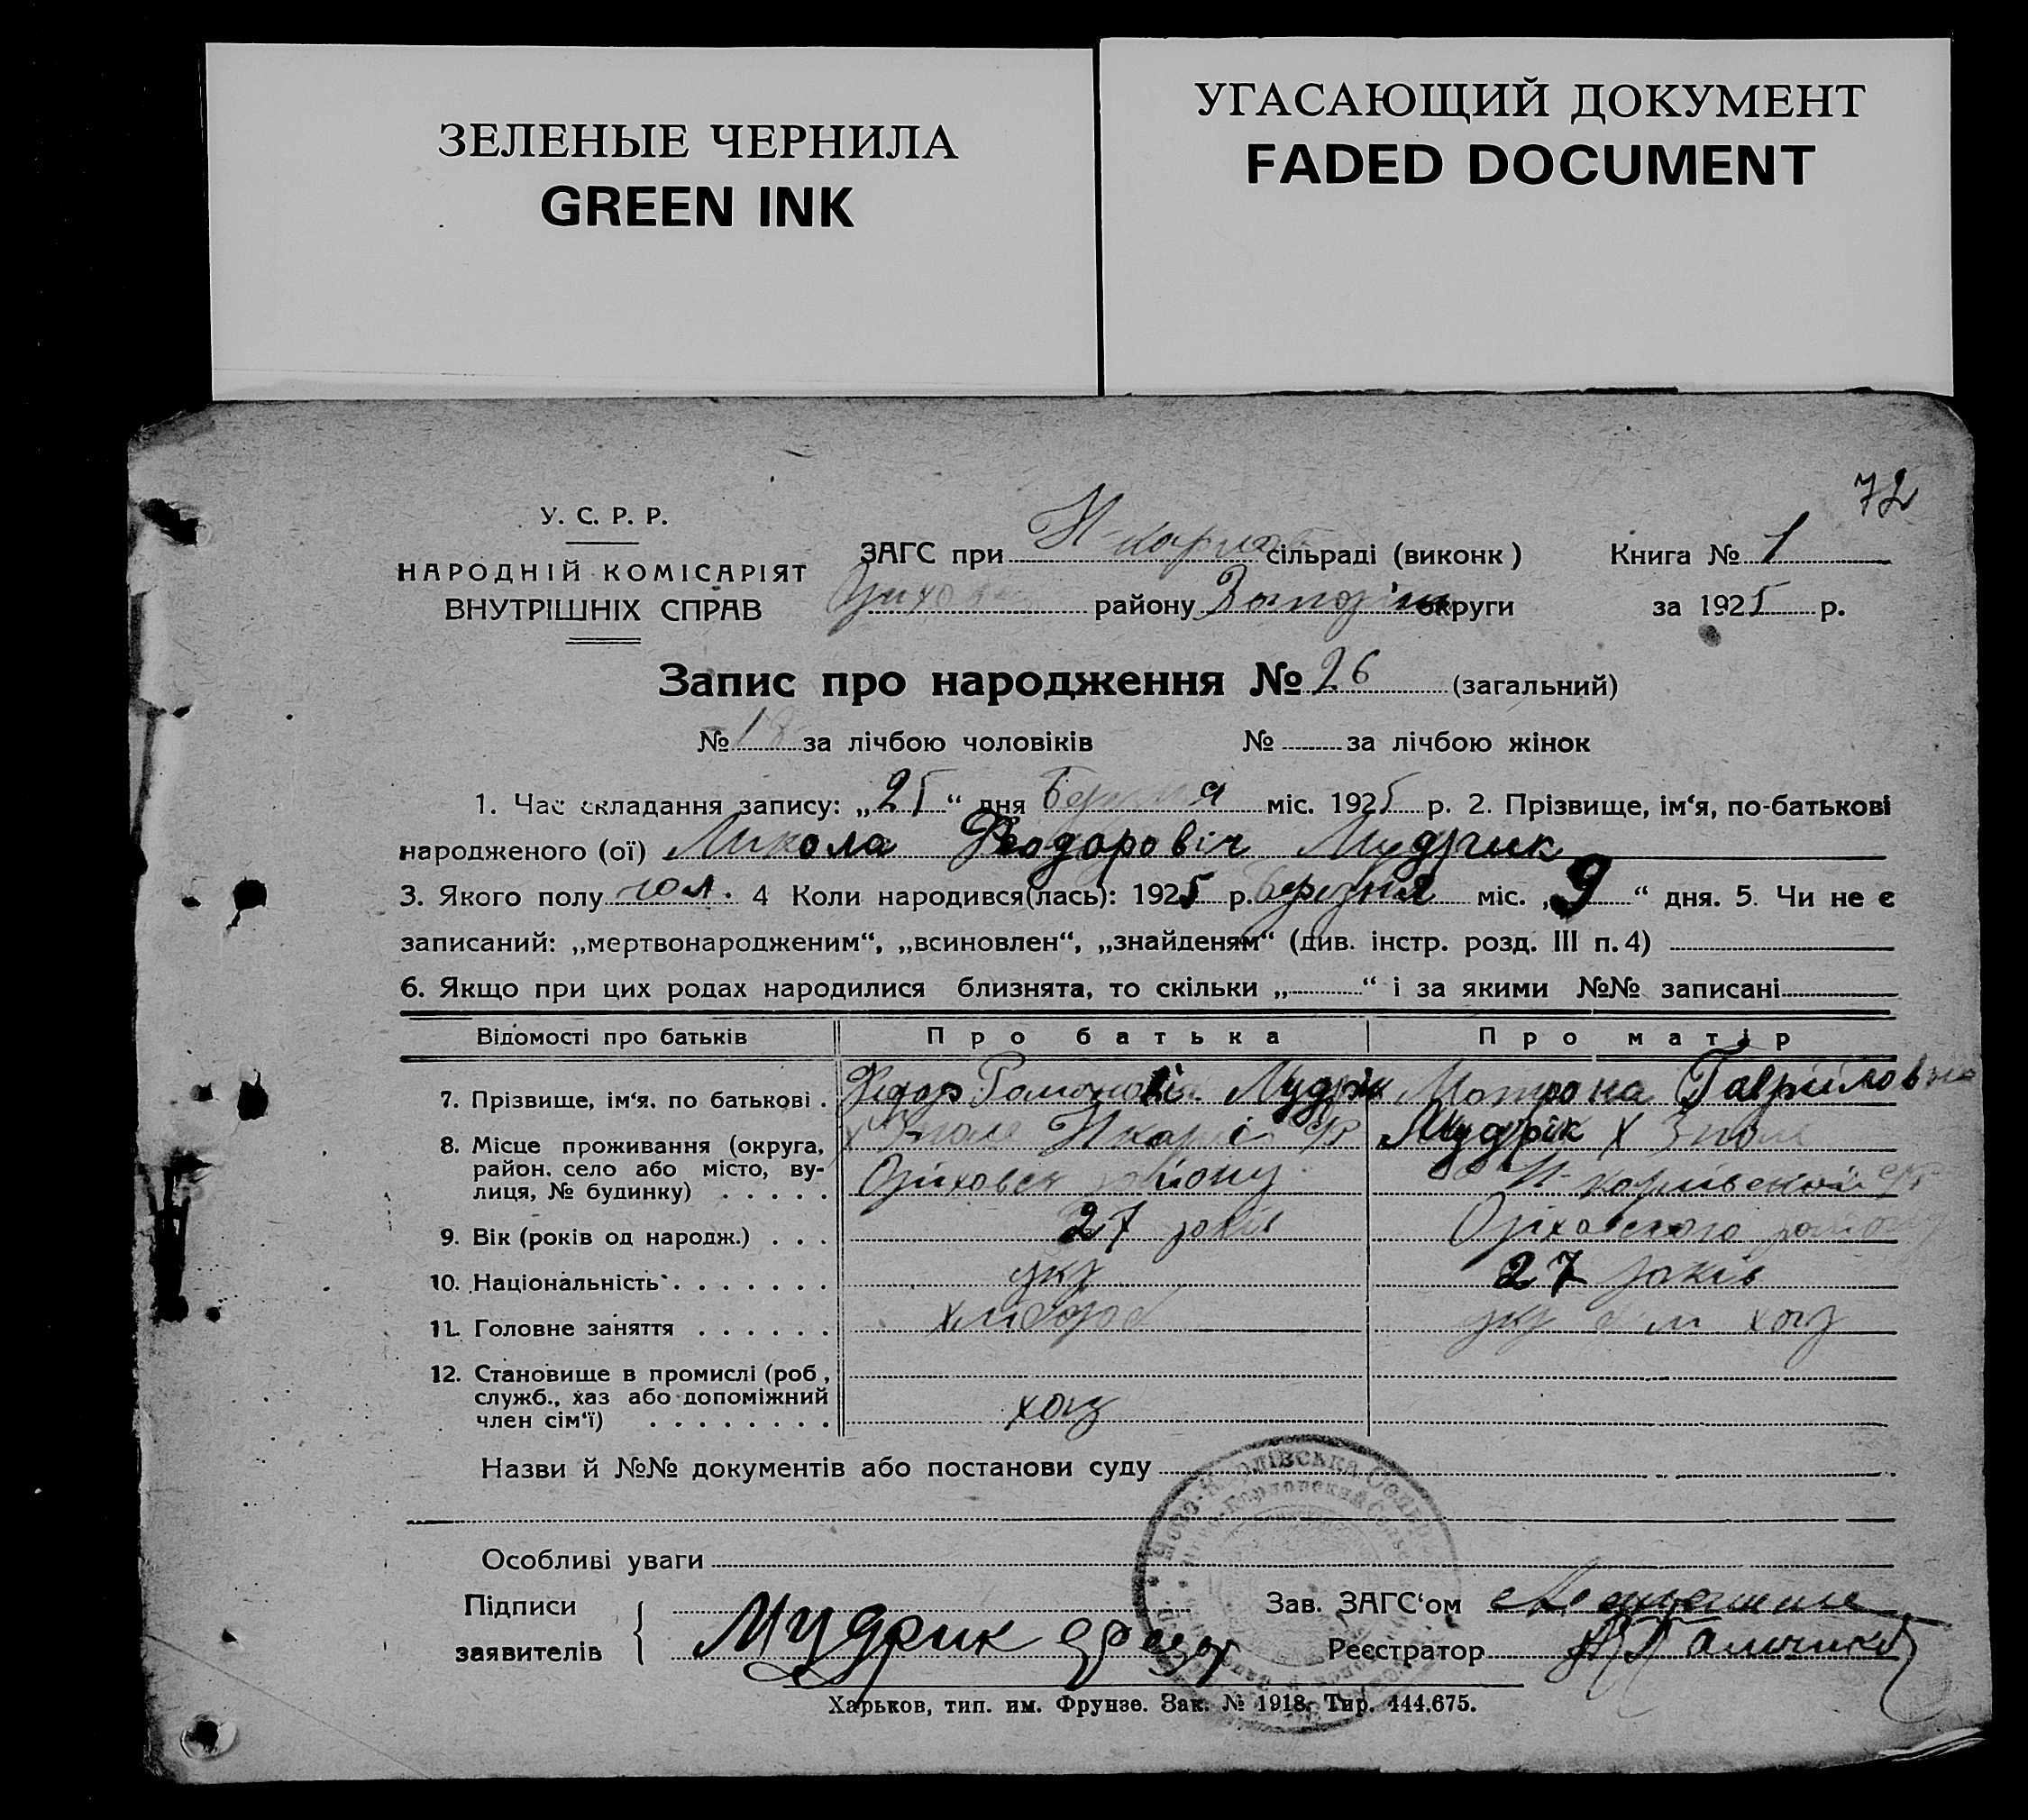 ЗЕЛЕНЫЕ ЧЕРНИЛА
GREEN INK
УГАСАЮЩИЙ ДОКУМЕНТ
FADED DOCUMENT
72
У. С. Р. Р.
НАРОДНІЙ КОМІСАРІЯТ
ВНУТРІШНІХ СПРАВ
ЗАГС при сільраді (виконк) Книга № 1
району округи за 1925 р.
Запис про народження № 26 (загальний)
№ 18 за лічбою чоловіків № за лічбою жінок
1. Час складання запису: „25“ дня Березня міс. 1925 р. 2. Прізвище, ім‘я, по-батькові
народженого (ої) Микола Феодоровіч Мудрик
3. Якого полу чол. 4 Коли народився(лась): 1925 р. Березня міс. „9“ дня. 5. Чи не є
записаний: „мертвонародженим“, „всиновлен“, „знайденям“ (див. інстр. розд. III п. 4)
6. Якщо при цих родах народилися близнята, то скільки „ “ і за якими №№ записані
Відомості про батьків Про батька Про матір
7. Прізвище, ім‘я, по батькові . Федор Мудрік Мотрона Гавриловна
8. Місце проживання (округа, Мудрік х
район, село або місто, ву-
лиця, № будинку) . . . . . Оріховск району
9. Вік (років од народж.) . . . 27 років Оріховского району
10. Національність . . . . . . . укр 27 років
11. Головне заняття . . . . . . хлібороб укр
12. Становище в промислі (роб,
служб., хаз або допоміжний
член сім‘ї) . . . . . . . . хоз
Назви й №№ документів або постанови суду
Особливі уваги
Підписи Зав. ЗАГС‘ом
заявителів Мудрик Реєстратор
Харьков, тип. им. Фрунзе. Зак. № 1918. Тир. 444.675.